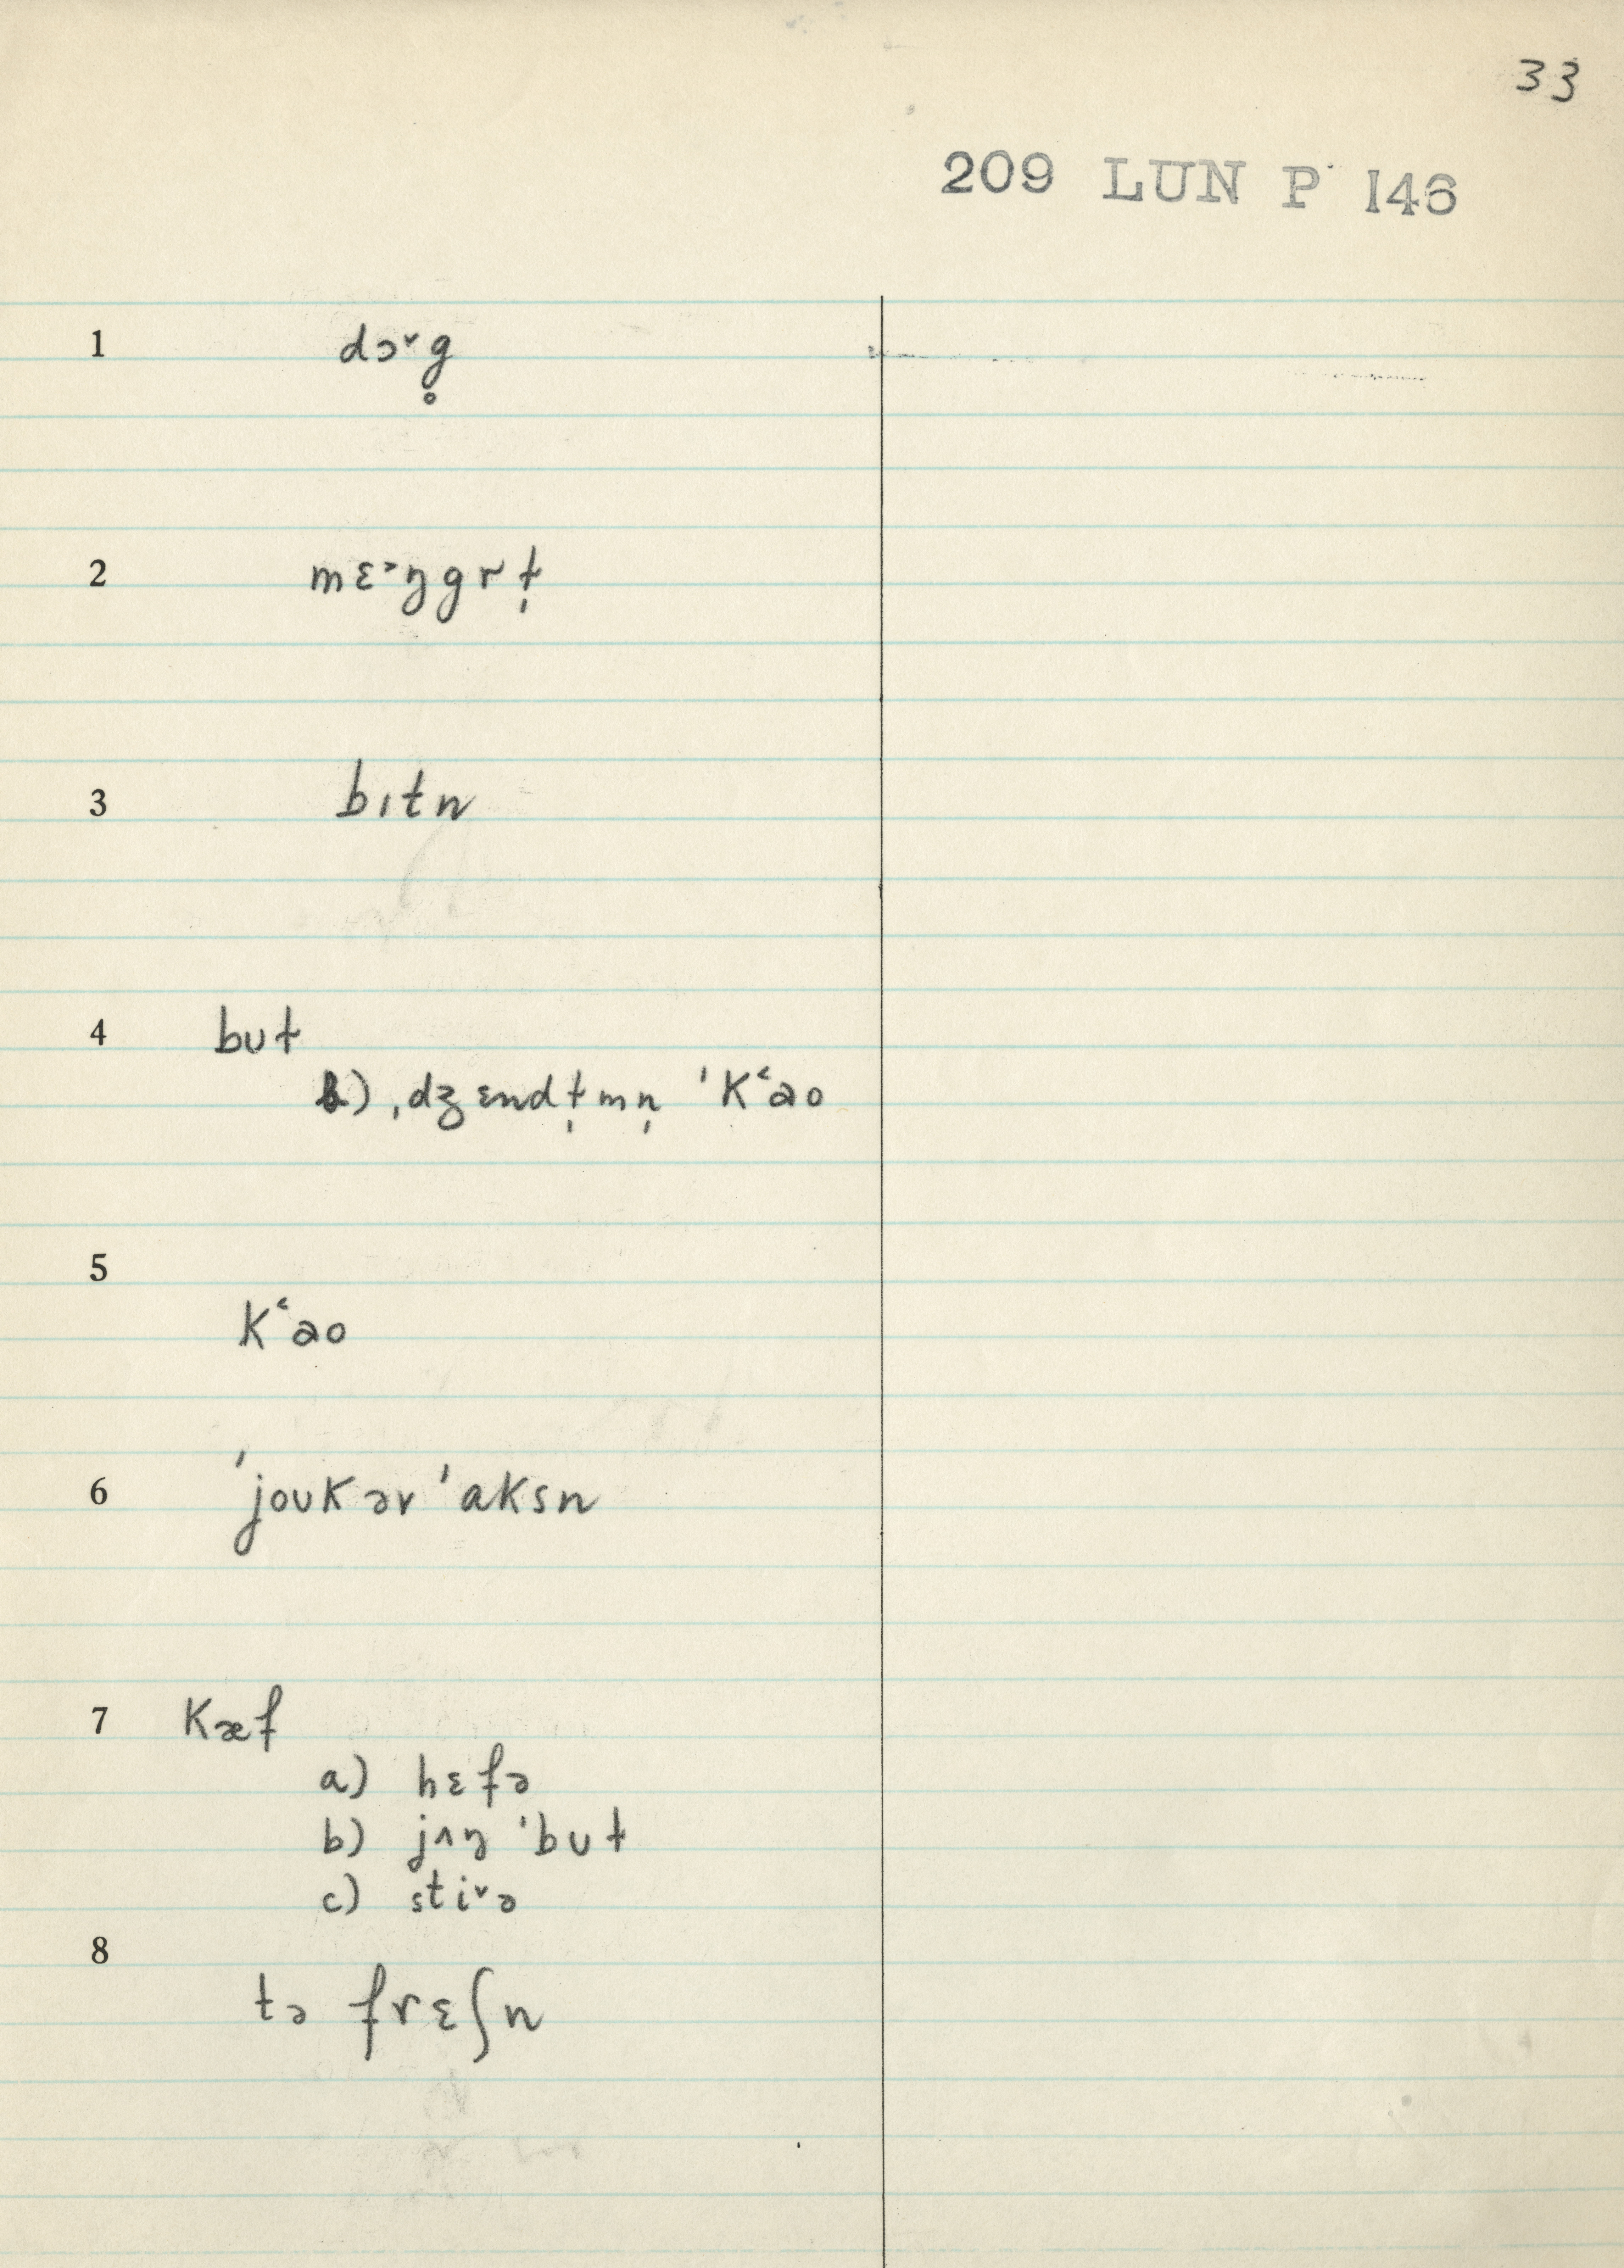 33
209 LUN P 146
1 dɔ˅g̥
2 mɛ˃ŋgrɫ̩
3 bɪtn
4 bʊɫ
b) ˌdʒɛndɫ̩mn̩ ˈKʻao
5
Kʻao
6 ˈjoʊKərˈaksn
7 Kæf
a) hɛfə
b) jʌŋ ˈbʊɫ
c) sti˅ə
8
tə frɛʃn